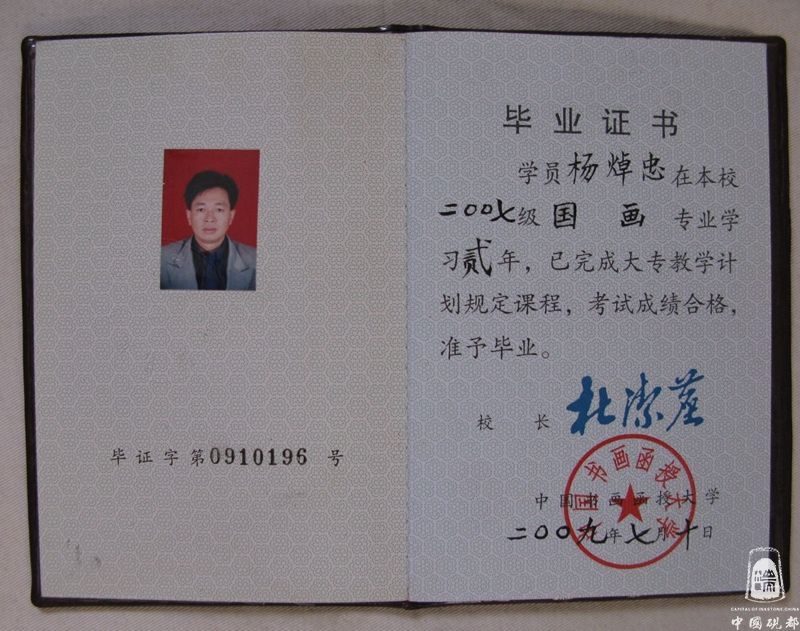 毕证字第0910196号
毕业证书
学员杨焯忠在本校
二〇〇七级国画专业学
习贰年，已完成大专教学计
划规定课程，考试成绩合格，
准予毕业。
校长
中国书画函授大学
中国书画函授大学
二〇〇九年七月十日
CAPITAL OF INKSTONE,CHINA
中國硯都